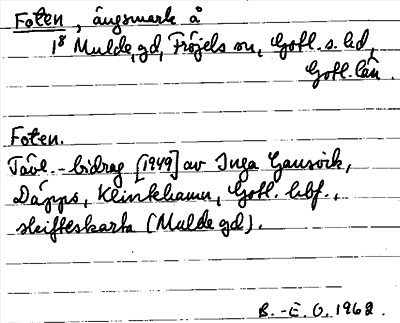 Foten, ängsmark å
1⁸ Mulde, gd, Fröjels sn, Gotl. s. hd,
Gotl. län.
Foten.
Tävl.-bidrag [1949] av Inga Gansvik,
Däpps, Klintehamn, Gotl. hbf.,
skifteskarta (Mulde gd).
B.-E. O. 1962.